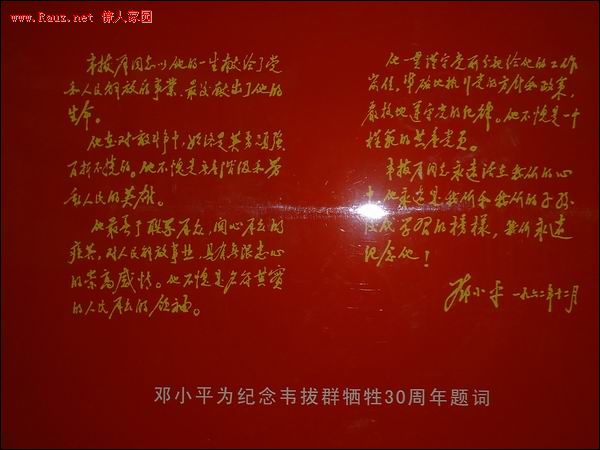 www.Rauz.net 僚人家园
韦拔群同志以他的一生献给了党
和人民解放的事業，最后献出了他的
生命。
他在对敌斗争中，始终是英勇顽强
百折不挠的。他不愧是无产階级和劳
动人民的英雄。
他最善于联系群众，関心群众的
疾苦，对人民解放事业，具有无限忠心
的崇高感情。他不愧是名符其實
的人民群众的领袖。
他一贯谨守党所分配给他的工作
崗位，準确地执行党的方针和政策，
严格地遵守党的纪律。他不愧是一个
模范的共產党员。
韦拔群同志永远活在我们的心
中，他永远是我们和我们的子孙
后代学習的榜樣，我们永远
纪念他！
邓小平 一九六二年十二月
邓小平为纪念韦拔群牺牲30周年题词